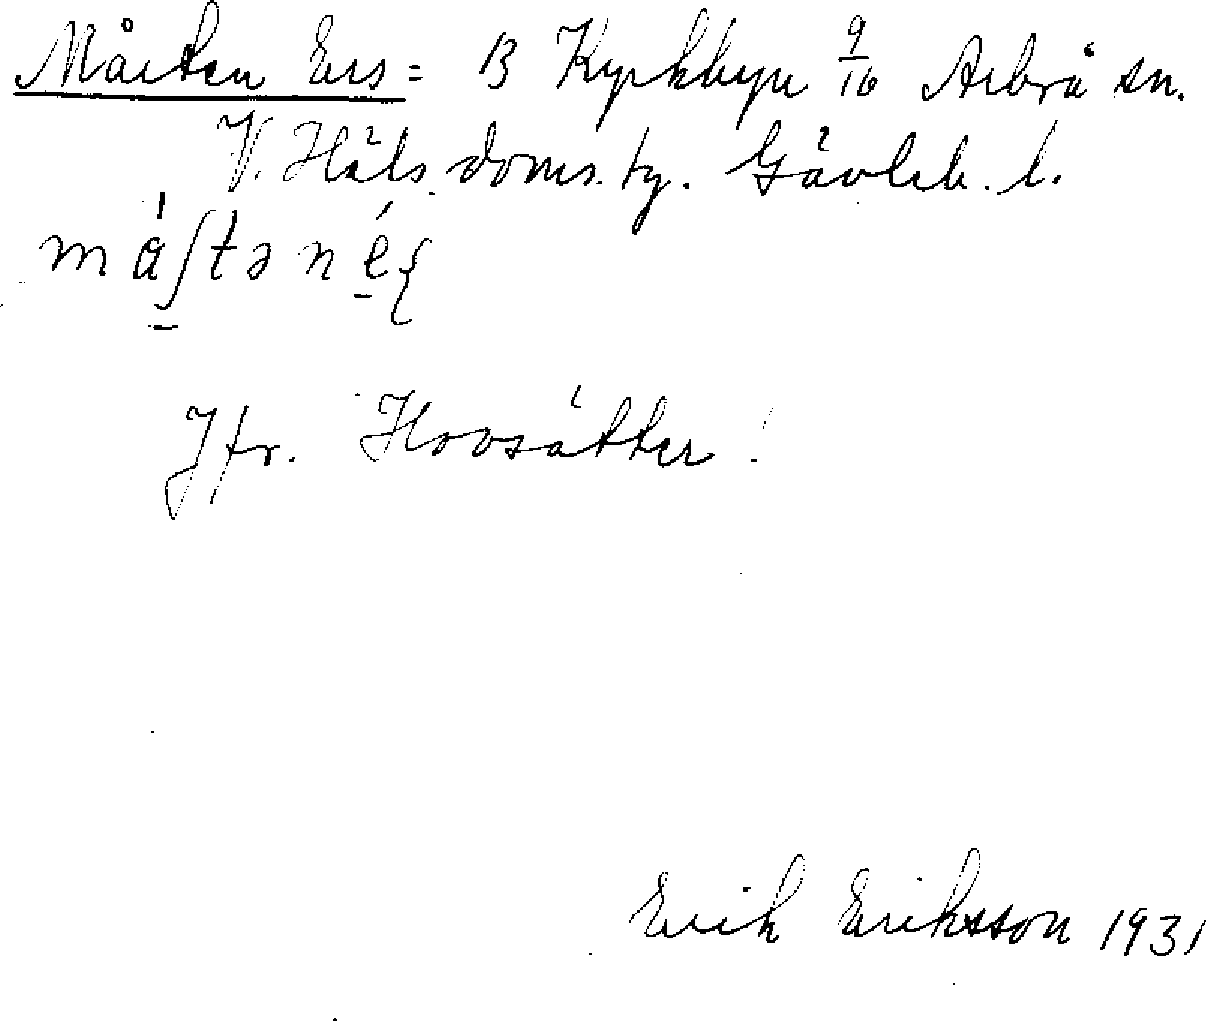 Mårten Ers = B Kyrkbyn 9/16 Arbrå sn.
V. Häls. doms. tg. Gävleb. l.
Jfr. Hovsätter !
Erik Eriksson 1931